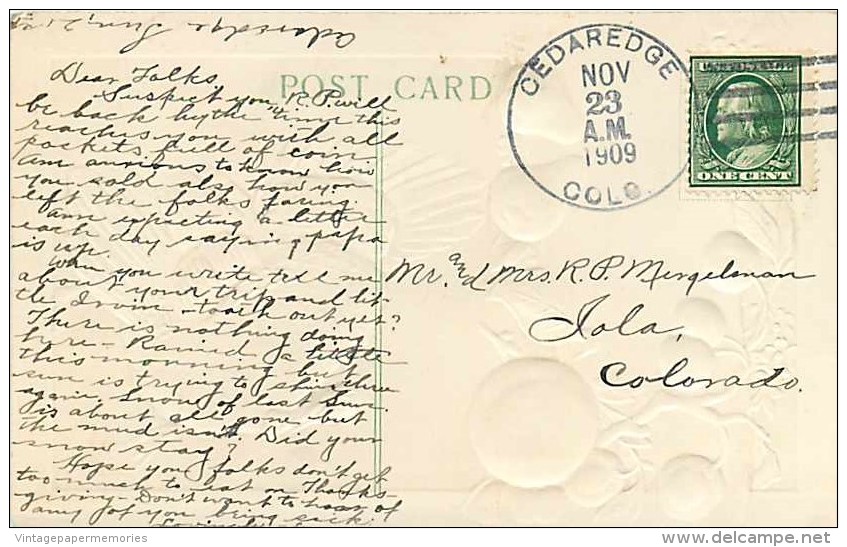 Cedaredge
Dear Folks,
Suspect you, R.P. will
be back by the time this
reaches you with all
pockets full of coin
am anxious to know how
you sold also how you
left the folks faring.
Am expecting a letter
each day saying papa
is up.
When you write tell me
about your trip and lit-
tle Irvin - tooth out yet?
There is nothing doing
here - Rained a little
this morning but
sun is trying to shine here
again. Snow of last Sun.
is about all gone but
the mud isn't. Did your
snow stay?
Hope you folks don't get
too much to eat on Thanks-
giving - Don't want to hear of
any of you being sick.
Lovingly
POST CARD
CEDAREDGE
NOV
23
A.M.
1909
COLO.
U.S. POSTAGE
ONE CENT
Mr. and Mrs. R. P. Mergelman
Iola,
Colorado.
Vintagepapermemories
delcampe.net